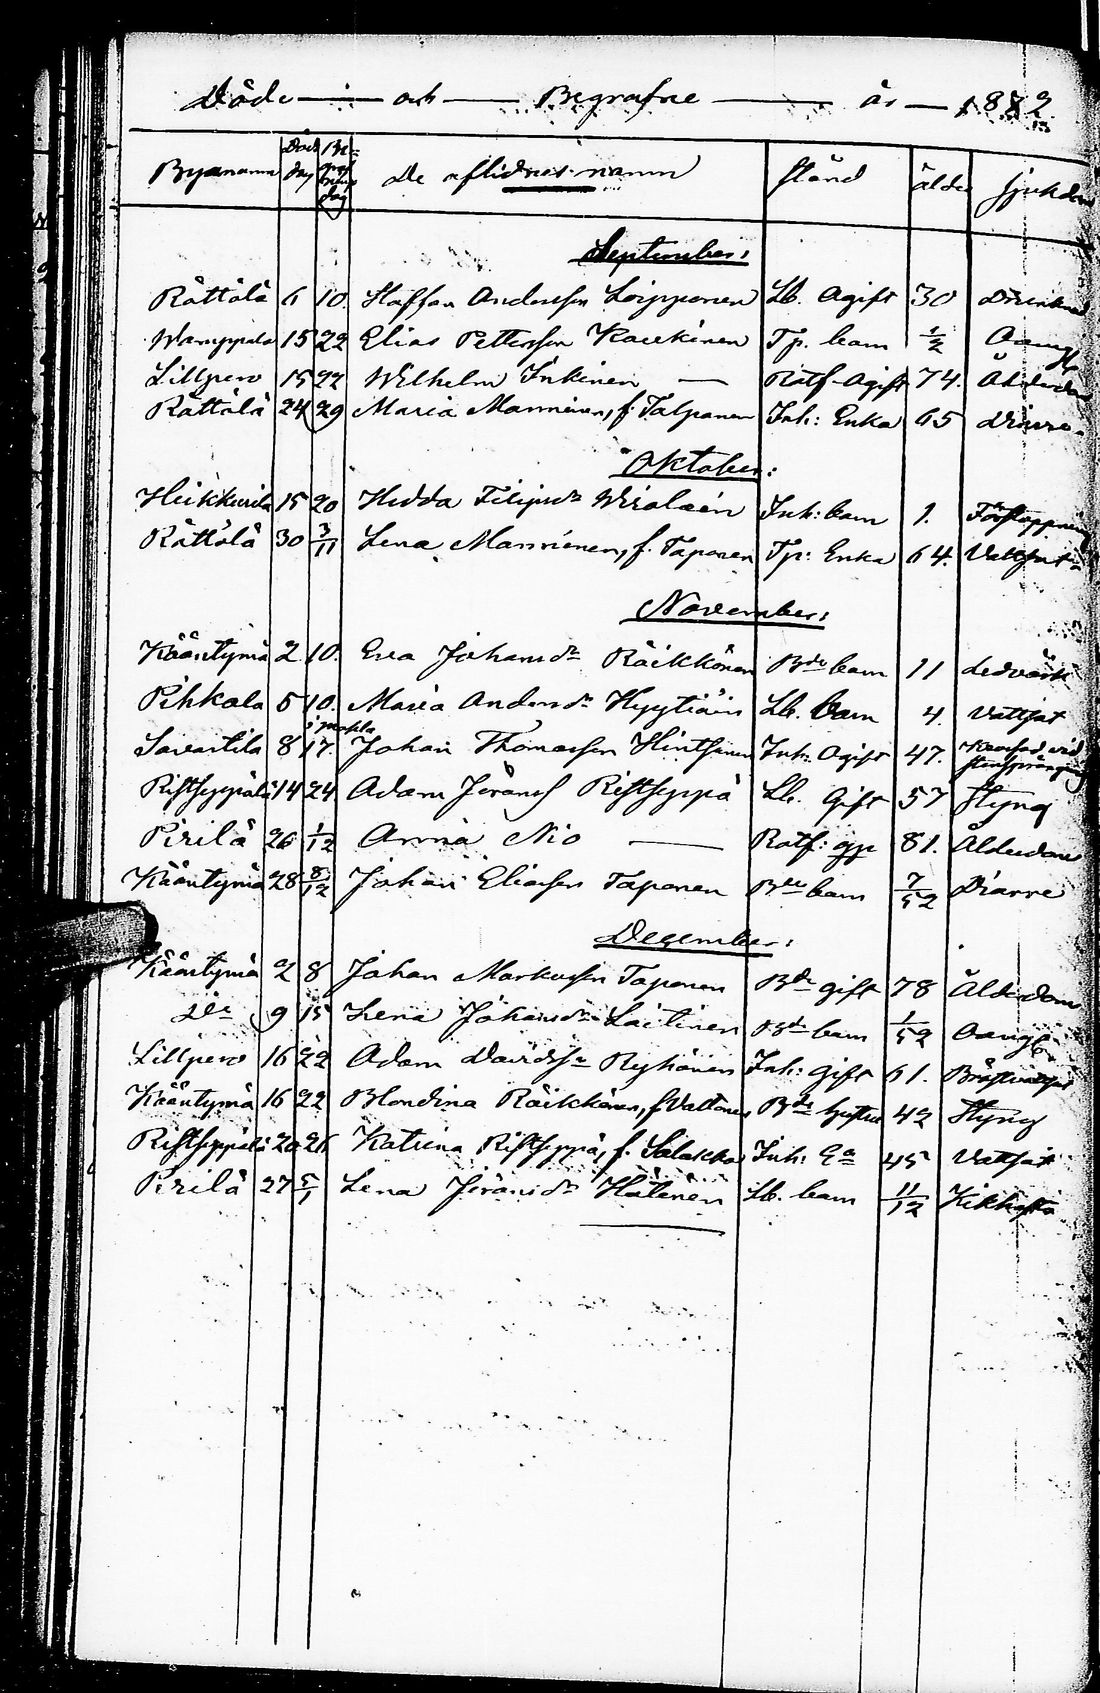 Döde — och — Begrafne — år — 1872
Byanamn Död dag Be- graf nings dag De aflidnes namn Stånd Ålder Sjukdom
September:
Rättölä 6 10. Staffan Andersson Loipponen Lb. Ogift 30
15 22 Elias Pettersson Kaukinen Tp. barn 1/2
Lillpero 15 22 Wilhelm Inkinen — Rotf. Ogift 74.
Rättölä 24 29 Maria Manninen, f. Talponen Inh: Enka 65
Oktober:
Heikkurila 15 20 Hedda Filipsdr Wirolain Inh: barn 1. Förstoppning
Rättölä 30 3/11 Lena Manninen, f. Taponen Tp: Enka 64. Vattsot
November:
Kääntymä 2 10. Eva Johansdr Räikkönen Bde barn 11 Ledvärk
Pihkala 5 10. Maria Andersdr Hyytiäin Lb. Barn 4. Vattsot
Savartila 8 17. Johan Thomasson Hintsanen Inh: Ogift 47. vid
Ristseppälä 14 24 Adam Jöransson Ristseppä Lb. Gift 57 Styng
Pirilä 26 1/12 Anna Nio — Rotf: 81. Ålderdom
Kääntymä 28 8/12 Johan Eliasson Taponen Bde barn 7/52 Diarre
December:
Kääntymä 2 8 Johan Markusson Taponen Bde gift 78 Ålderdom
Do 9 15 Lena Johansdr Laitinen Bde barn 1/52
Lillpero 16 22 Adam Davidsson Ryhänen Inh: Gift 61.
Kääntymä 16 22 Blondina Räikkönen, f. Valtonen Bde 42 Styng
Ristseppälä 20 26 Katrina Ristseppä, f. Salakka Inh: Ea 45 Vattsot
Pirilä 27 5/1 Lena Jöransdr Hätönen Lb. barn 11/12 Kikhosta